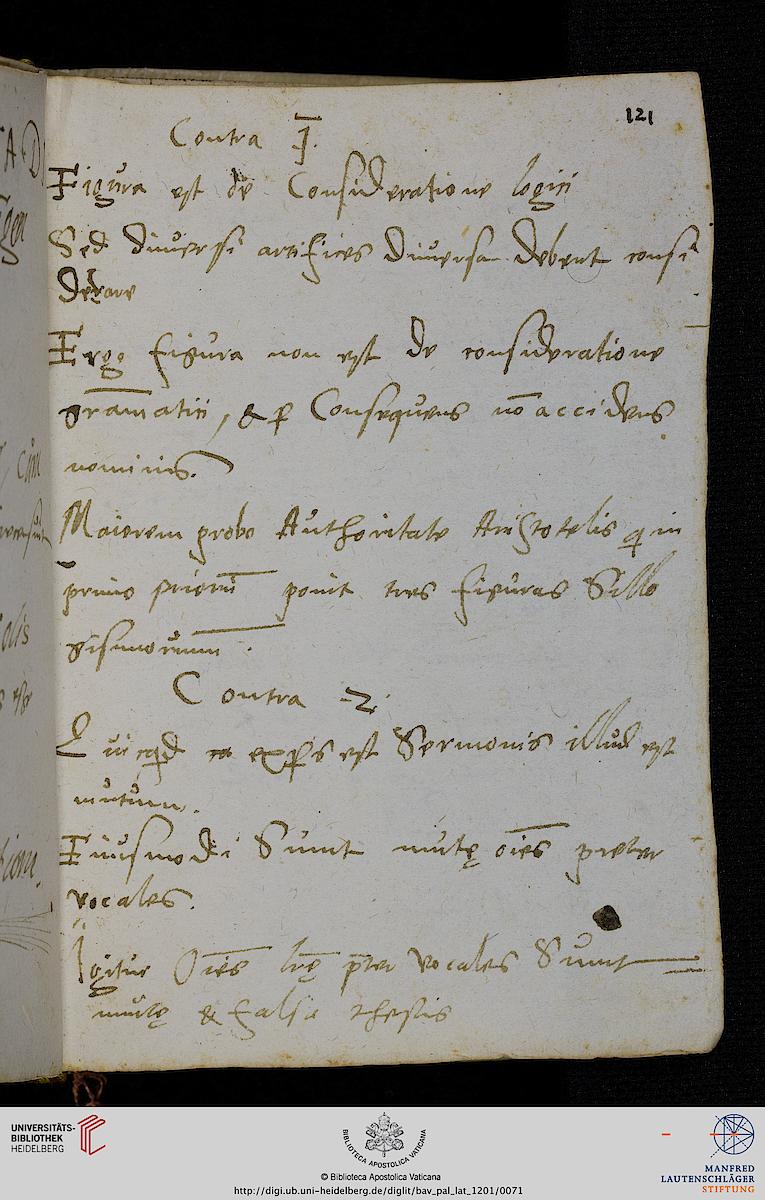 121
Contra 1.
Figura est de Consideratione logici
Sed diuersi artifices diuersa debent consi
derare
Ergo figura non est de consideratione
gram̄atici, & p Consequens nō accidens
nominis.
Maiorem probo Authoritate Aristotelis q in
primo priorū ponit tres figuras Sillo
gismorum.
Contra 2.
Quicqd exps est Sermonis illud est
mutum.
Eiusmodi Sunt mutę oīes preter
vocales.
Igitur Oīes lr̄ę p̄ter vocales Sunt
mutę & falsa thesis
UNIVERSITÄTS-
BIBLIOTHEK
HEIDELBERG
BIBLIOTECA APOSTOLICA VATICANA
© Biblioteca Apostolica Vaticana
http://digi.ub.uni-heidelberg.de/diglit/bav_pal_lat_1201/0071
MANFRED
LAUTENSCHLÄGER
STIFTUNG